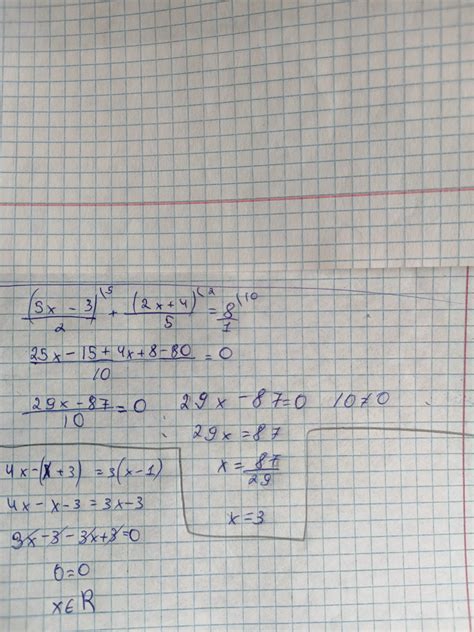 (5x - 3)\5 / 2 + (2x + 4)\2 / 5 = 8\10 / 1
25x - 15 + 4x + 8 - 80 / 10 = 0
29x - 87 / 10 = 0 29x - 87 = 0 10 ≠ 0
29x = 87
x = 87 / 29
x = 3
4x - (x + 3) = 3(x - 1)
4x - x - 3 = 3x - 3
3x - 3 - 3x + 3 = 0
0 = 0
x ∈ R